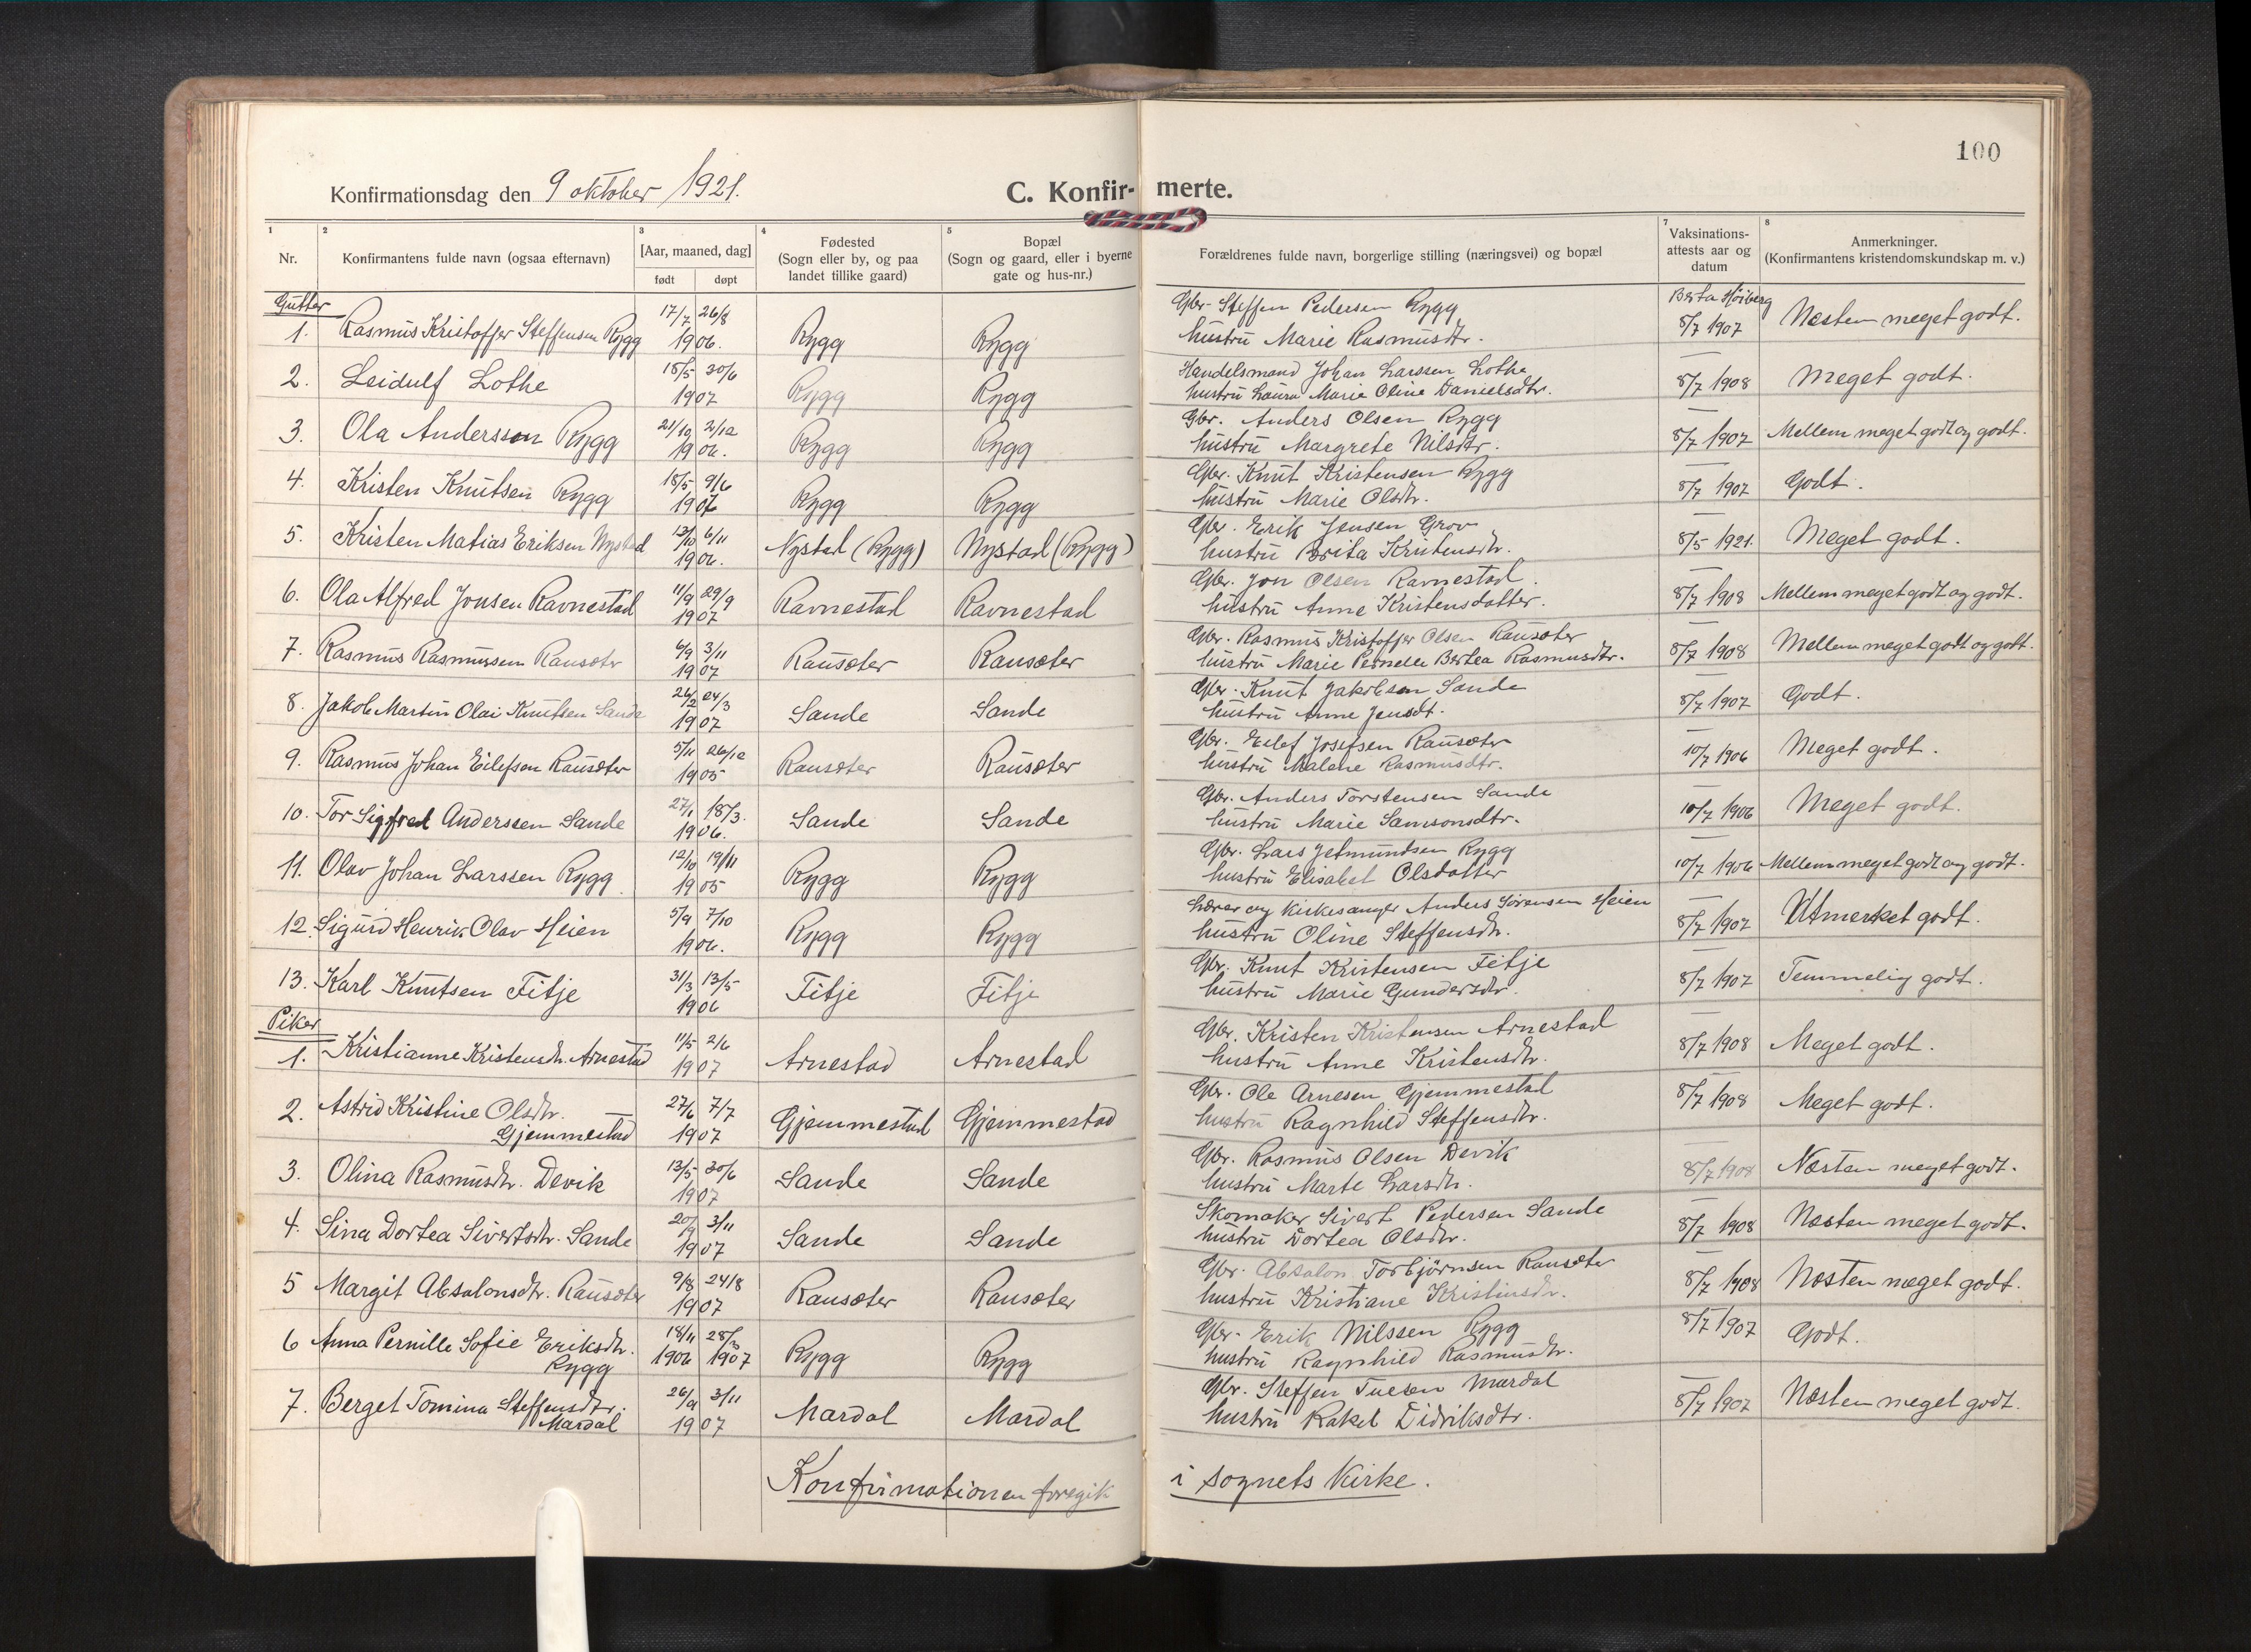 100
Konfirmationsdag den 9 oktober 1921. C. Konfir- merte.
1 2 3 4 5 7 8
Nr. Konfirmantens fulde navn (ogsaa efternavn) [Aar, maaned, dag] født døpt Fødested (Sogn eller by, og paa landet tillike gaard) Bopæl (Sogn og gaard, eller i byerne gate og hus-nr.) Forældrenes fulde navn, borgerlige stilling (næringsvei) og bopæl Vaksinations-attests aar og datum Anmerkninger. (Konfirmantens kristendomskundskap m. v.)
Gutter
1. Rasmus Kristoffer Steffensen Rygg 17/7 26/8 1906. Rygg Rygg Gbr. Steffen Pedersen Rygg hustru Marie Rasmusdtr. Berta Høiberg 8/7 1907 Næsten meget godt.
2. Leidulf Lothe 18/5 30/6 1907 Rygg Rygg Handelsmand Johan Larssen Lothe hustru Laura Marie Oline Danielsdtr. 8/7 1908 Meget godt.
3. Ola Anderssen Rygg 21/10 2/12 1906. Rygg Rygg Gbr. Anders Olsen Rygg hustru Margrete Nilsdtr. 8/7 1907 Mellem meget godt og godt.
4. Kristen Knutsen Rygg 18/5 9/6 1907 Rygg Rygg Gbr. Knut Kristensen Rygg hustru Marie Olsdtr. 8/7 1907 Godt.
5. Kristen Matias Eriksen Nystad 13/10 6/11 1906. Nystad (Rygg) Nystad (Rygg) Gbr. Erik Jensen Grov hustru Brita Kristensdtr. 8/5 1921. Meget godt.
6. Ola Alfred Jonsen Ravnestad 11/9 29/9 1907 Ravnestad Ravnestad Gbr. Jon Olsen Ravnestad. hustru Anne Kristensdatter. 8/7 1908 Mellem meget godt og godt.
7. Rasmus Rasmussen Rausæter 6/9 3/11 1907 Rausæter Rausæter Gbr. Rasmus Kristoffer Olsen Rausæter hustru Marie Pernelle Bertea Rasmusdtr. 8/7 1908 Mellem meget godt og godt.
8. Jakob Martin Olai Knutsen Sande 26/2 24/3 1907 Sande Sande Gbr. Knut Jakobsen Sande hustru Anne Jensdt. 8/7 1907 Godt.
9. Rasmus Johan Eilefsen Rausæter 5/11 26/12 1905 Rausæter Rausæter Gbr. Eilef Josefsen Rausæter hustru Malene Rasmusdtr. 10/7 1906 Meget godt.
10. Tor Sigfred Anderssen Sande 27/1 18/3. 1906. Sande Sande Gbr. Anders Torstensen Sande hustru Marie Samsonsdtr. 10/7 1906 Meget godt.
11. Olav Johan Larssen Rygg 12/10 19/11 1905 Rygg Rygg Gbr. Lars Jetmundsen Rygg hustru Elisabet Olsdatter 10/7 1906 Mellem meget godt og godt.
12. Sigurd Henrik Olav Heien 5/9 7/10 1906. Rygg Rygg Lærer og kirkesanger Anders Sørensen Heien hustru Oline Steffensdtr. 8/7 1907 Utmerket godt.
13. Karl Knutsen Fitje 31/3 13/5 1906 Fitje Fitje Gbr. Knut Kristensen Fitje hustru Marie Gundersdtr. 8/7 1907 Temmelig godt.
Piker
1. Kristianne Kristensdtr. Arnestad 11/5 2/6 1907 Arnestad Arnestad Gbr. Kristen Kristensen Arnestad hustru Anne Kristensdtr. 8/7 1908 Meget godt.
2. Astrid Kristine Olsdtr. Gjemmestad 27/6 7/7 1907 Gjemmestad Gjemmestad Gbr. Ole Arnesen Gjemmestad hustru Ragnhild Steffensdtr. 8/7 1908 Meget godt.
3. Olina Rasmusdtr. Devik 13/5 30/6 1907 Sande Sande Gbr. Rasmus Olsen Devik hustru Marte Larsdtr. 8/7 1908 Næsten meget godt.
4. Sina Dortea Sivertsdtr. Sande 20/9 3/11 1907 Sande Sande Skomaker Sivert Pedersen Sande hustru Dortea Olsdtr. 8/7 1908 Næsten meget godt.
5 Margit Absalonsdtr. Rausæter 9/8 24/8 1907 Rausæter Rausæter Gbr. Absalon Torbjørnsen Rausæter hustru Kristiane Kristensdtr. 8/7 1908 Næsten meget godt.
6 Anna Pernille Sofie Eriksdtr. Rygg 18/11 1906 1907 Rygg Rygg Gbr. Erik Nilssen Rygg hustru Ragnhild Rasmusdtr. 8/7 1907 Godt.
7. Berget Tomina Steffensdtr. Mardal 26/9 3/11 1907 Mardal Mardal Gbr. Steffen Mardal hustru Rakel Didriksdtr. 8/7 1907 Næsten meget godt.
Konfirmationen foregik i sognets kirke.